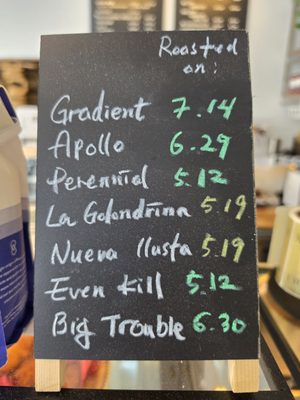 Roasted
on:
Gradient 7.14
Apollo 6.29
Perennial 5.12
La Golondrina 5.19
Nueva llusta 5.19
Even Kill 5.12
Big Trouble 6.30